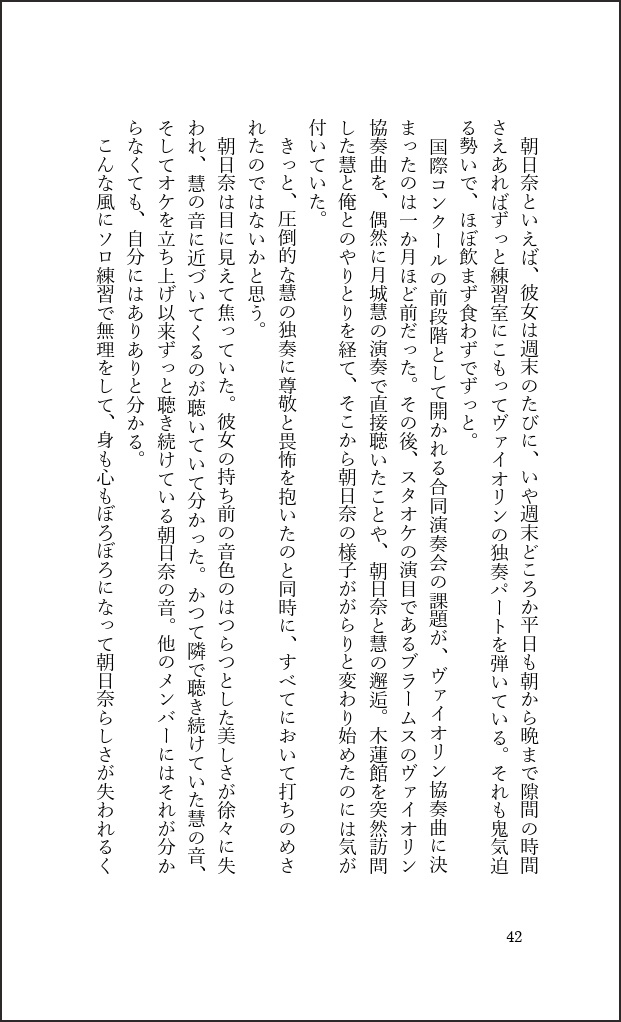 朝日奈といえば、彼女は週末のたびに、いや週末どころか平日も朝から晩まで隙間の時間
さえあればずっと練習室にこもってヴァイオリンの独奏パートを弾いている。それも鬼気迫
る勢いで、ほぼ飲まず食わずでずっと。
国際コンクールの前段階として開かれる合同演奏会の課題が、ヴァイオリン協奏曲に決
まったのは一か月ほど前だった。その後、スタオケの演目であるブラームスのヴァイオリン
協奏曲を、偶然に月城慧の演奏で直接聴いたことや、朝日奈と慧の邂逅。木蓮館を突然訪問
した慧と俺とのやりとりを経て、そこから朝日奈の様子ががらりと変わり始めたのには気が
付いていた。
きっと、圧倒的な慧の独奏に尊敬と畏怖を抱いたのと同時に、すべてにおいて打ちのめさ
れたのではないかと思う。
朝日奈は目に見えて焦っていた。彼女の持ち前の音色のはつらつとした美しさが徐々に失
われ、慧の音に近づいてくるのが聴いていて分かった。かつて隣で聴き続けていた慧の音、
そしてオケを立ち上げ以来ずっと聴き続けている朝日奈の音。他のメンバーにはそれが分か
らなくても、自分にはありありと分かる。
こんな風にソロ練習で無理をして、身も心もぼろぼろになって朝日奈らしさが失われるく
42